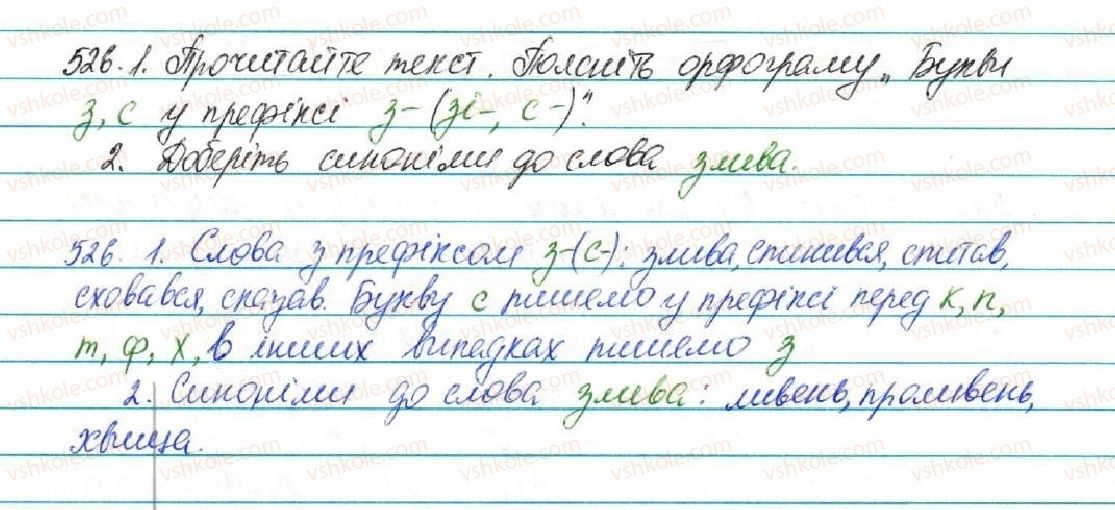 526.1. Прочитайте текст. Поясніть орфограму „Букви
з, с у префіксі з- (зі-, с-)".
2. Доберіть синоніми до слова злива.
526. 1. Слова з префіксом з-(с-): злива, спинився, спитав,
сховався, сказав. Букву с пишемо у префіксі перед к, п,
т, ф, х, в інших випадках пишемо з
2. Синоніми до слова злива: ливень, проливень,
хвища.